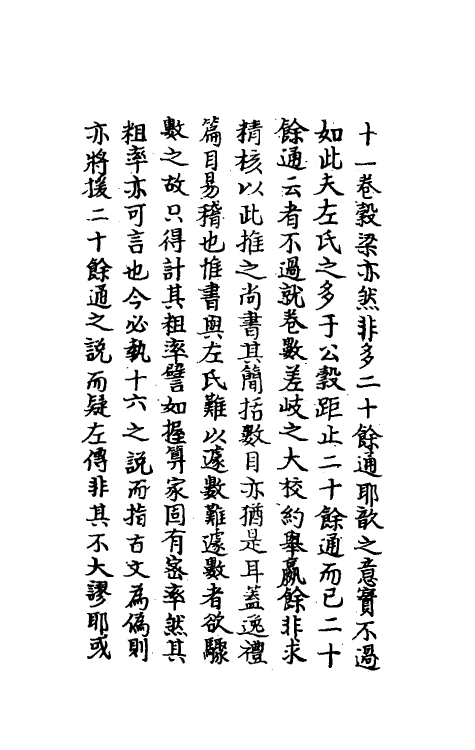 十一卷糓梁亦然非多二十餘通耶歆之意實不過
如此夫左氏之多于公糓距止二十餘通而已二十
餘通云者不過就卷數差歧之大校約舉嬴餘非求
精核以此推之尚書其簡括數目亦猶是耳蓋逸禮
篇目易稽也惟書與左氏難以遽數難遽數者欲驟
數之故只得計其粗率譬如握算家固有宻率然其
粗率亦可言也今必執十六之説而指古文為偽則
亦將援二十餘通之説而疑左傳非其不大謬耶或